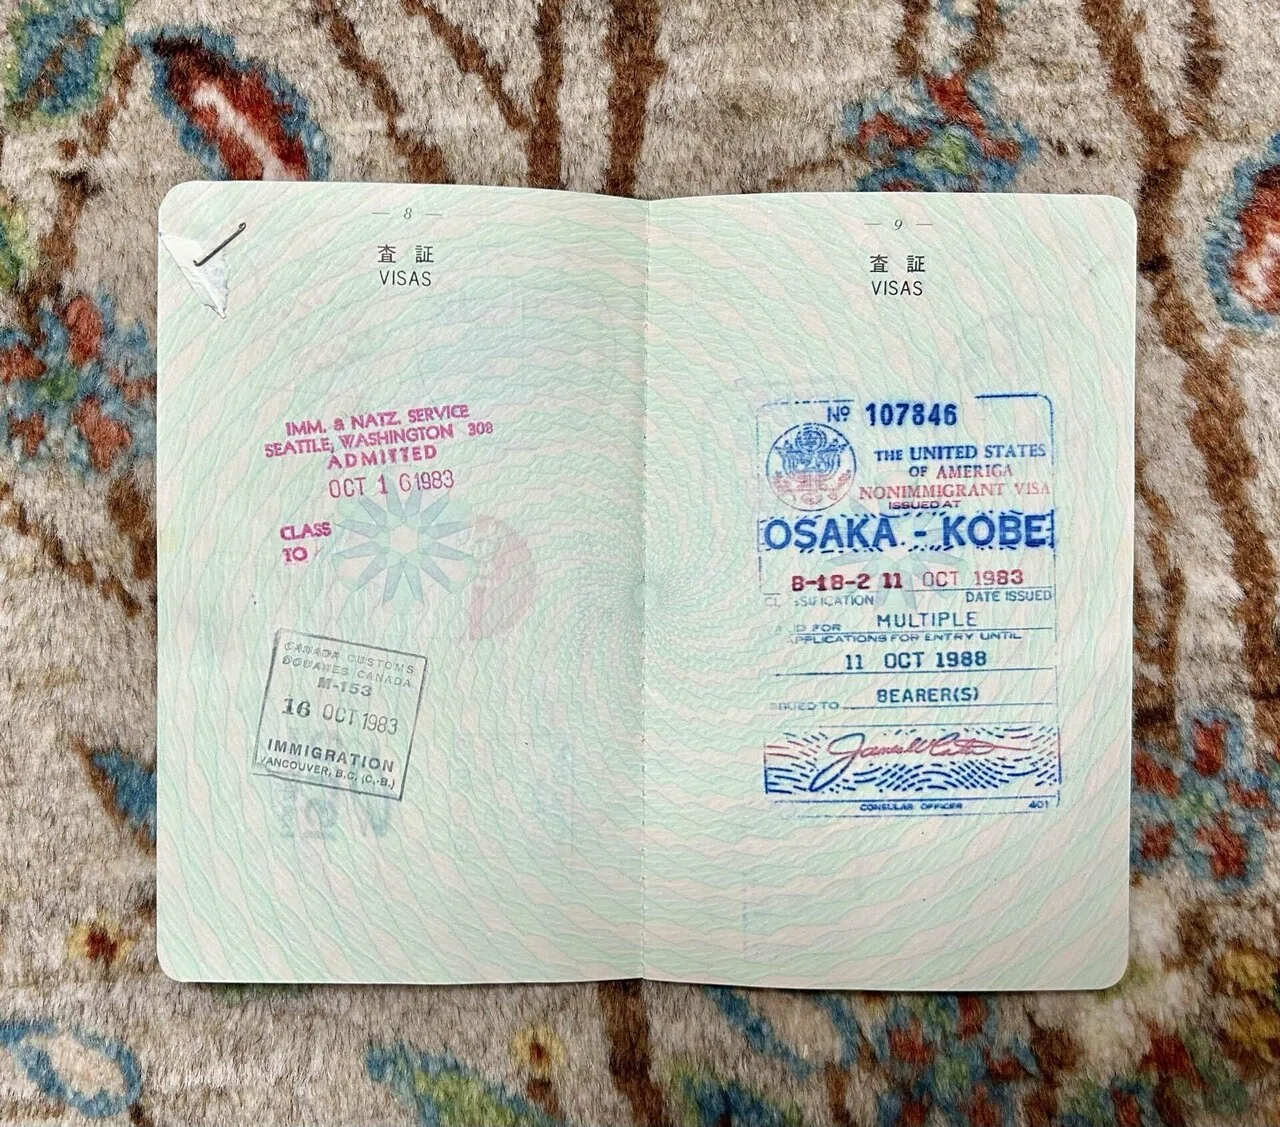 — 8 —
査証
VISAS
IMM. & NATZ. SERVICE
SEATTLE, WASHINGTON 308
ADMITTED
OCT 16 1983
CLASS
TO
CANADA CUSTOMS
DOUANES CANADA
M-153
16 OCT 1983
IMMIGRATION
VANCOUVER, B.C. (C.-B.)
— 9 —
査証
VISAS
Nº 107846
THE UNITED STATES
OF AMERICA
NONIMMIGRANT VISA
ISSUED AT
OSAKA - KOBE
B-1B-2 11 OCT 1983
CLASSIFICATION DATE ISSUED
FOR MULTIPLE
APPLICATIONS FOR ENTRY UNTIL
11 OCT 1988
ISSUED TO BEARER(S)
CONSULAR OFFICER 401